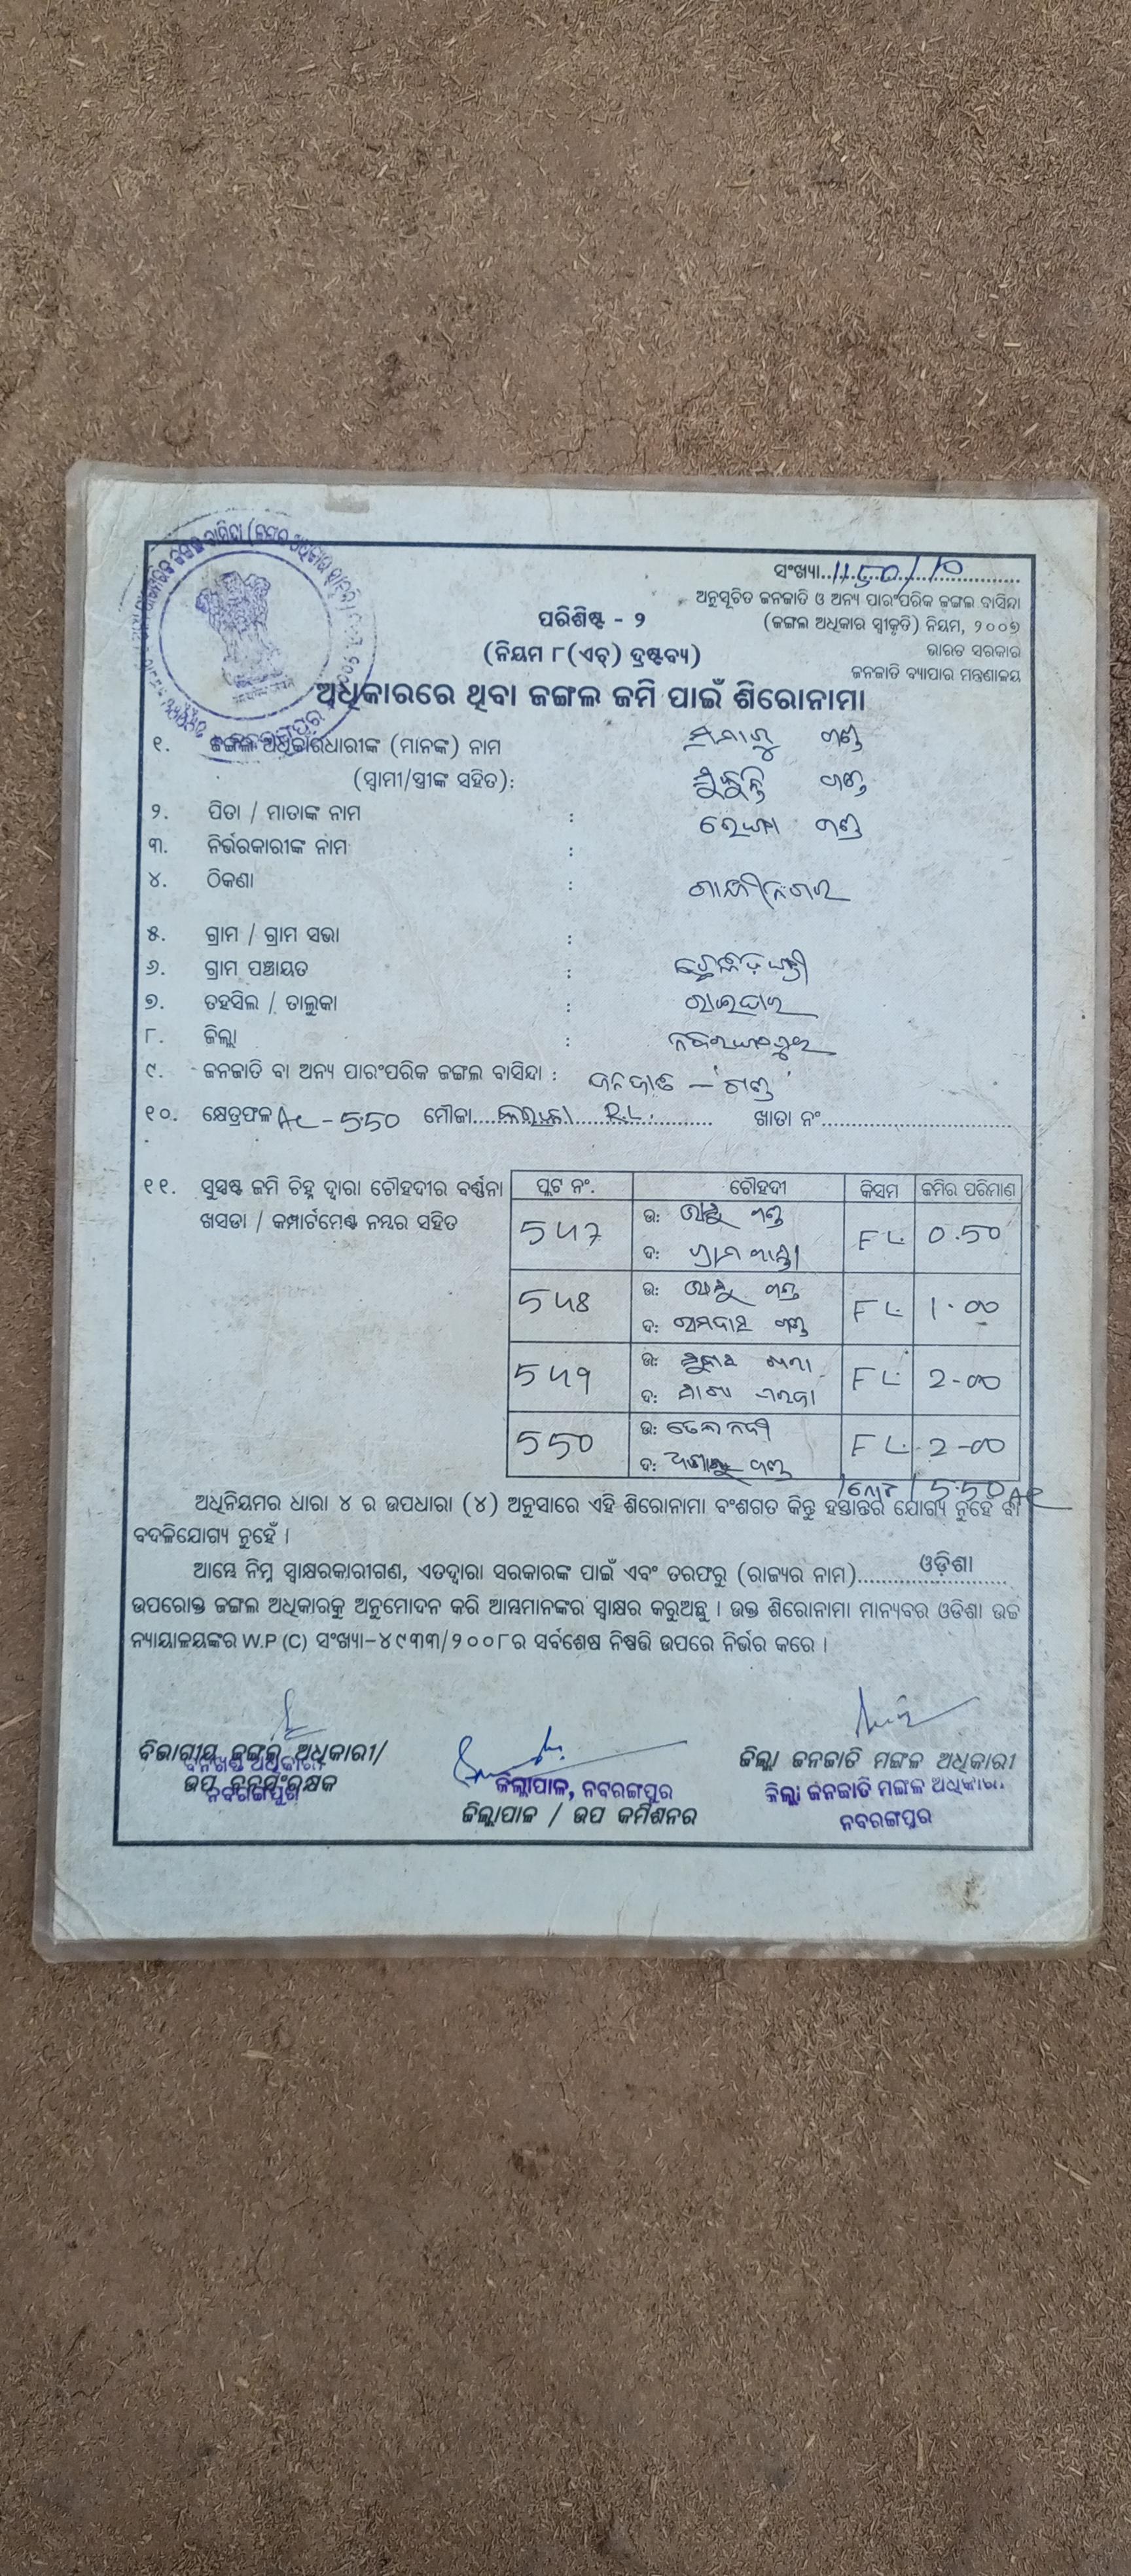 ସଂଖ୍ୟା..1150/10
ଅନୁସୂଚିତ ଜନଜାତି ଓ ଅନ୍ୟ ପାରଂପରିକ ଜଙ୍ଗଲ ବାସିନ୍ଦା
(ଜଙ୍ଗଲ ଅଧିକାର ସ୍ୱୀକୃତି) ନିୟମ, ୨୦୦୭
ଭାରତ ସରକାର
ଜନଜାତି ବ୍ୟାପାର ମନ୍ତ୍ରଣାଳୟ
ପରିଶିଷ୍ଟ - ୨
(ନିୟମ ୮(ଏଚ୍) ଦ୍ରଷ୍ଟବ୍ୟ)
ଅଧିକାରରେ ଥିବା ଜଙ୍ଗଲ ଜମି ପାଇଁ ଶିରୋନାମା
୧. ଜଙ୍ଗଲ ଅଧିକାରଧାରୀଙ୍କ (ମାନଙ୍କ) ନାମ ଗଣ୍ଡ
(ସ୍ୱାମୀ/ସ୍ତ୍ରୀଙ୍କ ସହିତ): ଗଣ୍ଡ
୨. ପିତା / ମାତାଙ୍କ ନାମ : ଗଣ୍ଡ
୩. ନିର୍ଭରକାରୀଙ୍କ ନାମ :
୪. ଠିକଣା : ଗାନ୍ଧୀନଗର
୫. ଗ୍ରାମ / ଗ୍ରାମ ସଭା :
୬. ଗ୍ରାମ ପଞ୍ଚାୟତ :
୭. ତହସିଲ / ତାଲୁକା : ରାଇଘର
୮. ଜିଲ୍ଲା : ନବରଙ୍ଗପୁର
୯. ଜନଜାତି ବା ଅନ୍ୟ ପାରଂପରିକ ଜଙ୍ଗଲ ବାସିନ୍ଦା : ଜନଜାତି - 'ଗଣ୍ଡ'
୧୦. କ୍ଷେତ୍ରଫଳ AC - 5.50 ମୌଜା.... R.L. .... ଖାତା ନଂ....
୧୧. ସୁସ୍ପଷ୍ଟ ଜମି ଚିହ୍ନ ଦ୍ୱାରା ଚୌହଦୀର ବର୍ଣ୍ଣନା
ଖସଡା / କମ୍ପାର୍ଟମେଣ୍ଟ ନମ୍ବର ସହିତ
ପ୍ଲଟ ନଂ. ଚୌହଦୀ କିସମ ଜମିର ପରିମାଣ
547 ଉ: ଗଣ୍ଡ FL 0.50
ଦ:
548 ଉ: ଗଣ୍ଡ FL 1.00
ଦ: ଗଣ୍ଡ
549 ଉ: FL 2-00
ଦ:
550 ଉ: FL 2-00
ଦ: ଗଣ୍ଡ
ମୋଟ 5.50 AC
ଅଧିନିୟମର ଧାରା ୪ ର ଉପଧାରା (୪) ଅନୁସାରେ ଏହି ଶିରୋନାମା ବଂଶଗତ କିନ୍ତୁ ହସ୍ତାନ୍ତର ଯୋଗ୍ୟ ନୁହେଁ ବା
ବଦଳିଯୋଗ୍ୟ ନୁହେଁ ।
ଆମ୍ଭେ ନିମ୍ନ ସ୍ୱାକ୍ଷରକାରୀଗଣ, ଏତଦ୍ୱାରା ସରକାରଙ୍କ ପାଇଁ ଏବଂ ତରଫରୁ (ରାଜ୍ୟର ନାମ)....ଓଡ଼ିଶା....
ଉପରୋକ୍ତ ଜଙ୍ଗଲ ଅଧିକାରକୁ ଅନୁମୋଦନ କରି ଆମ୍ଭମାନଙ୍କର ସ୍ୱାକ୍ଷର କରୁଅଛୁ । ଉକ୍ତ ଶିରୋନାମା ମାନ୍ୟବର ଓଡିଶା ଉଚ୍ଚ
ନ୍ୟାୟାଳୟଙ୍କର W.P (C) ସଂଖ୍ୟା-୪୯୩୩/୨୦୦୮ର ସର୍ବଶେଷ ନିଷ୍ପତ୍ତି ଉପରେ ନିର୍ଭର କରେ ।
ବିଭାଗୀୟ ଜଙ୍ଗଲ ଅଧିକାରୀ/
ବନଖଣ୍ଡ ଅଧିକାରୀ
ଉପ ବନସଂରକ୍ଷକ
ନବରଙ୍ଗପୁର
ଜିଲ୍ଲାପାଳ, ନବରଙ୍ଗପୁର
ଜିଲ୍ଲାପାଳ / ଉପ କମିଶନର
ଜିଲ୍ଲା ଜନଜାତି ମଙ୍ଗଳ ଅଧିକାରୀ
ଜିଲ୍ଲା ଜନଜାତି ମଙ୍ଗଳ ଅଧିକାରୀ
ନବରଙ୍ଗପୁର